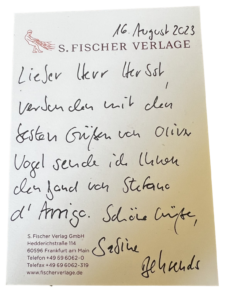 16. August 2023
S. FISCHER VERLAGE
Lieber Herr Herbst,
verbunden mit den
besten Grüßen von Oliver
Vogel sende ich Ihnen
den Band von Stefano
d'Arrigo. Schöne Grüße,
Sabine
S. Fischer Verlag GmbH
Hedderichstraße 114
60596 Frankfurt am Main
Telefon +49 69 6062-0
Telefax +49 69 6062-319
www.fischerverlage.de